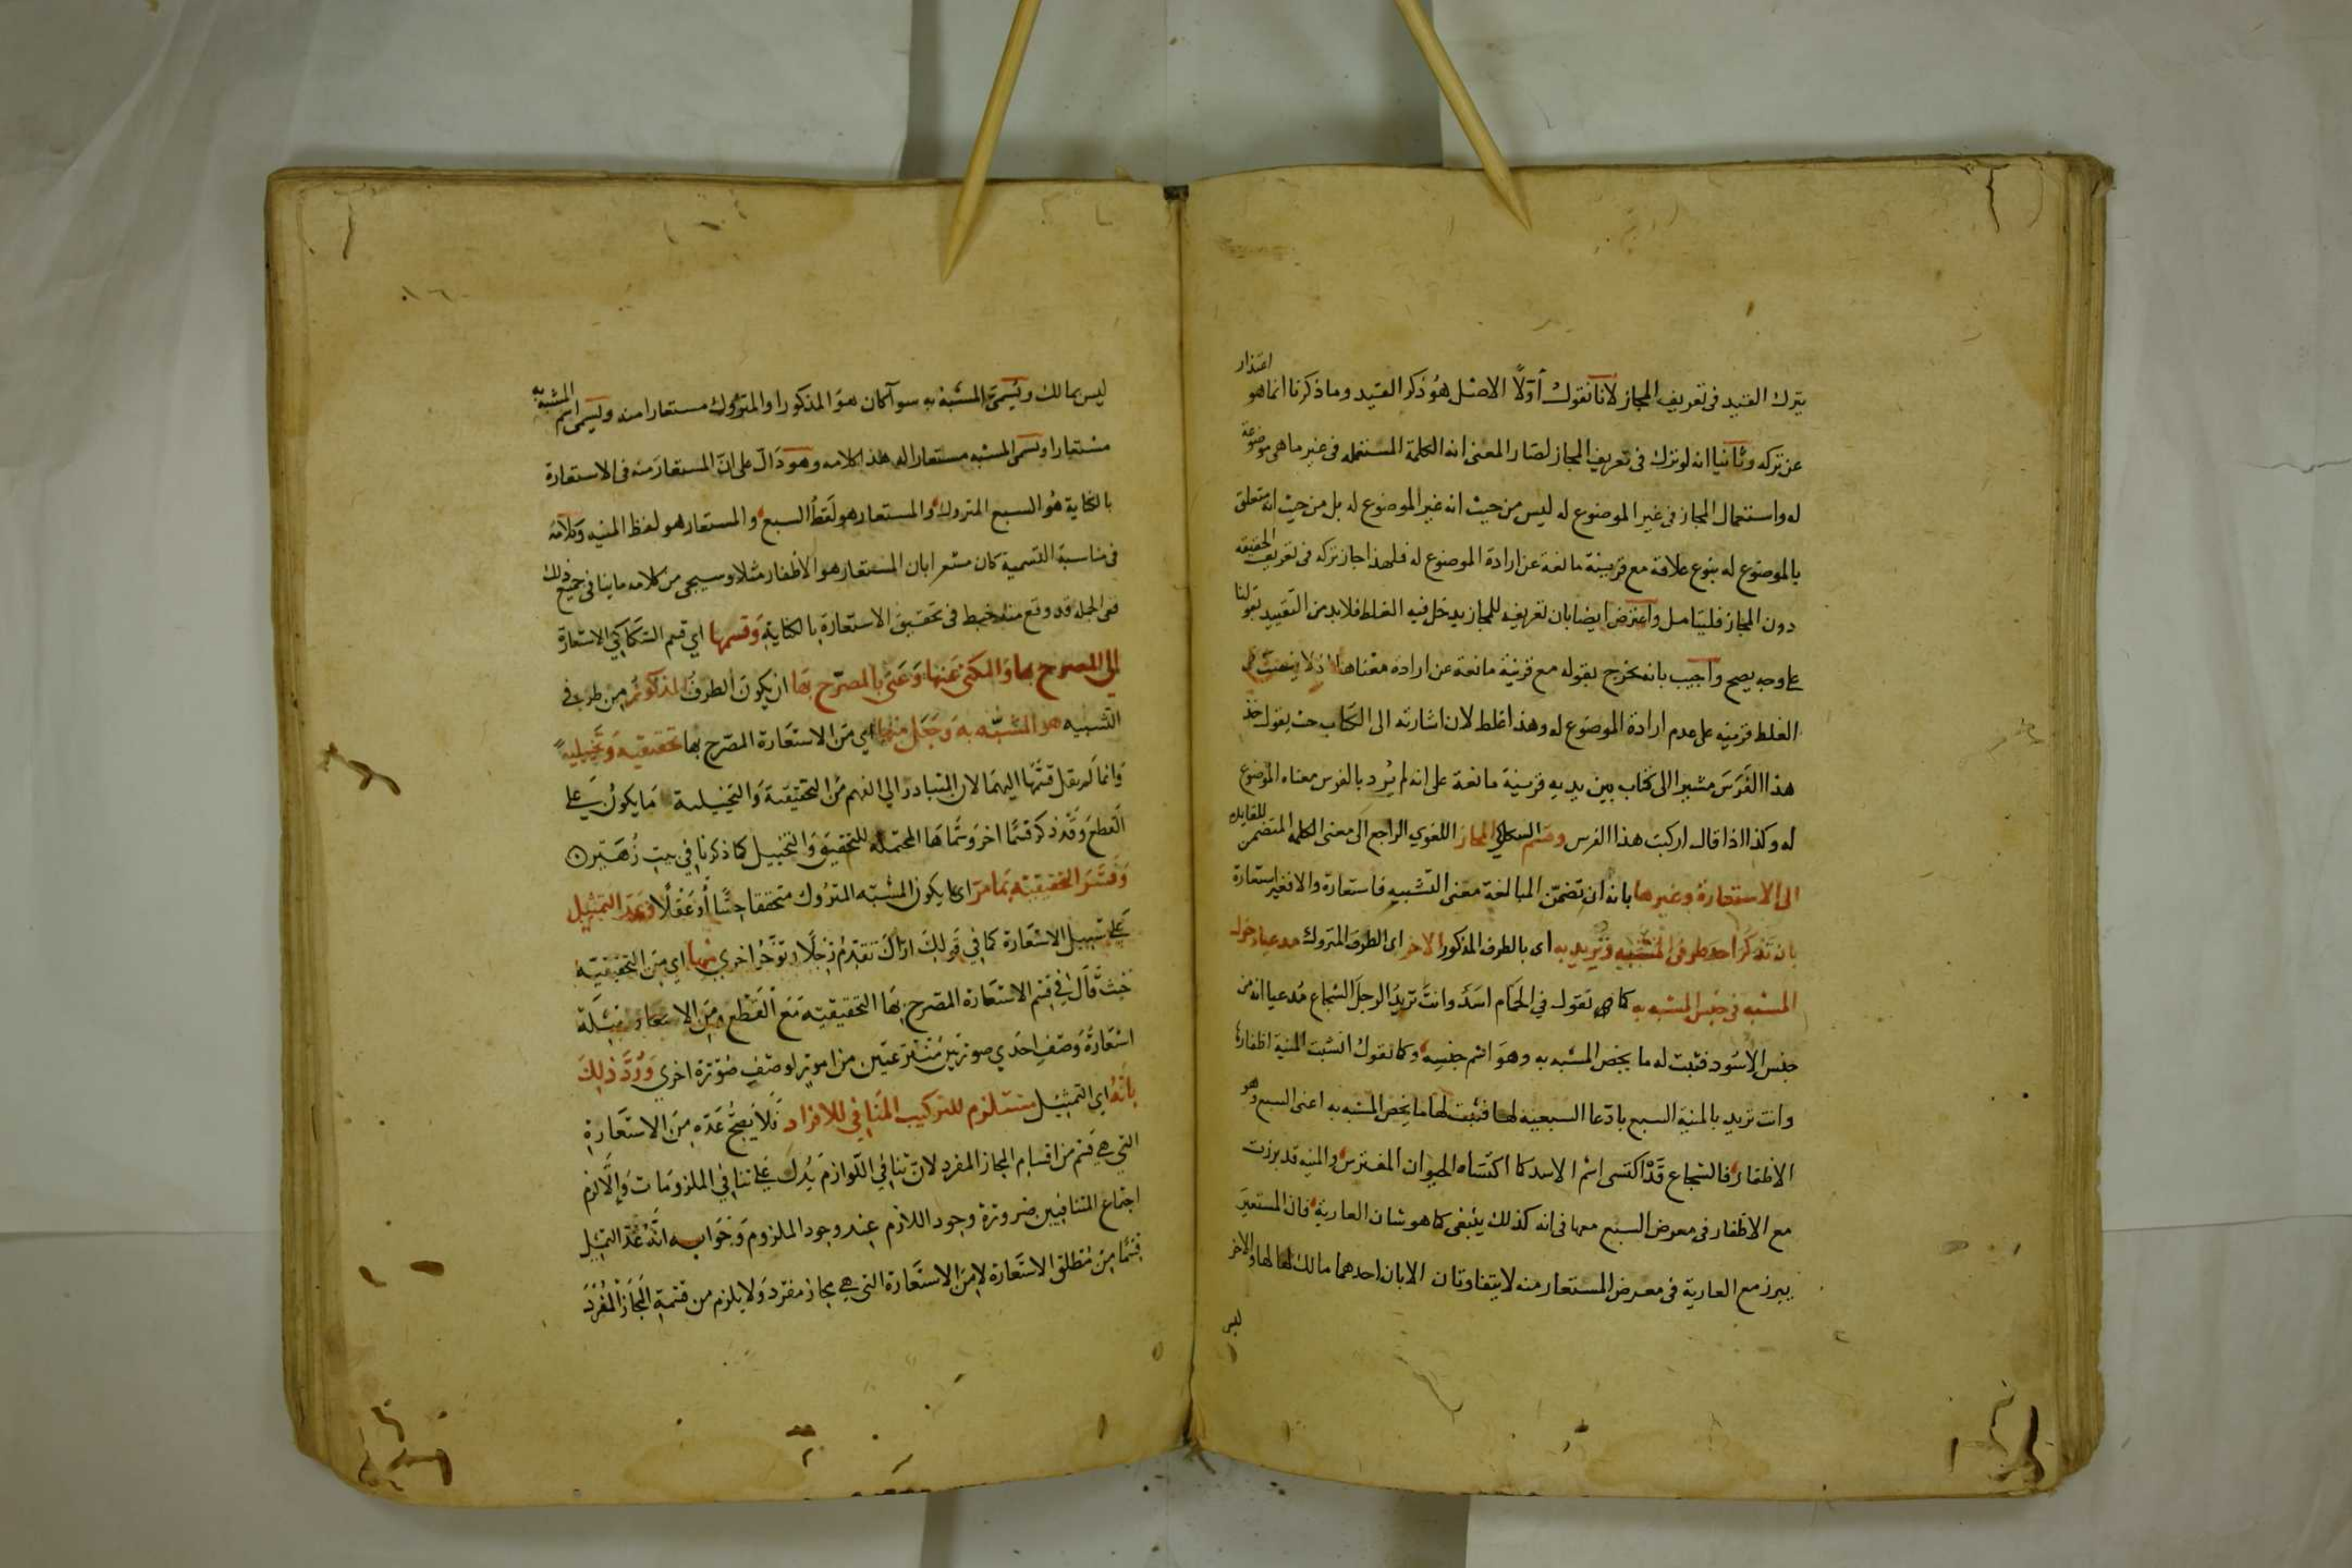 بترك القيد فى تعريف المجاز لانا نقول أولاً الاصل هو ذكر القيد وما ذكرنا انما هو اعتذار
عن تركه وثانيا انه لو ترك فى تعريف المجاز لصار المعنى انه الكلمة المستعمله فى غير ما هى موضوعة
له واستعمال المجاز فى غير الموضوع له ليس من حيث انه غير الموضوع له بل من حيث انه متعلق
بالموضوع له بنوع علاقة مع قرينة مانعة عن ارادة الموضوع له فلهذا جاز تركه فى تعريف الحقيقه
دون المجاز فليتامل واعترض ايضا بان تعريفه للمجاز يدخل فيه الغلط فلابد من التقييد بقولنا
على وجه يصح واجيب بانه يخرج بقوله مع قرينة مانعة عن ارادة معناها اذ لا ينصب فى
الغلط قرينه على عدم ارادة الموضوع له وهذا غلط لان اشارته الى الكتاب حيث يقول خذ
هذا الفرس مشيرا الى كتاب بين يديه قرينة مانعة على انه لم يرد بالفرس معناه الموضوع
له وكذا اذا قال اركبت هذا الفرس وقسم السكاكي المجاز اللغوي الراجع الى معنى الكلمه المتضمن للفايده
الى الاستعارة وغيرها بانه ان تضمن المبالغة معنى التشبيه فاستعارة والا فغير استعارة
بان تذكر احد طرفى التشبيه وتريد به اى بالطرف المذكور الاخر اى الطرف المتروك مدعيا دخول
المشبه فى جنس المشبه به كما تقول في الحمام اسد وانت تريد الرجل الشجاع مدعيا انه من
جنس الاسود فتثبت له ما يخص المشبه به وهو اسم جنسه وكما تقول انشبت المنية اظفارها
وانت تريد بالمنية السبع بادعا السبعيه لها فتثبت لها ما يخص المشبه به اعنى السبع وهو
الاظفار فالشجاع قد اكتسى اسم الاسد كما اكتساه الحيوان المفترس والمنيه قد برزت
مع الاظفار فى معرض السبع معها فى انه كذلك ينبغى كما هو شان العارية فان المستعير
يبرز مع العارية فى معرض المستعار منه لا يتفاوتان الا بان احدهما مالك لها والاخر
ليس
ليس بمالك ويسمى المشبه به سوا كان هو المذكور او المتروك مستعارا منه ويسمى اسم المشبه به
مستعارا ويسمى المشبه مستعارا له هذا كلامه وهو دال على ان المستعار منه فى الاستعارة
بالكناية هو السبع المتروك والمستعار هو لفظ السبع والمستعار هو لفظ المنيه وكلامه
فى مناسبة التسمية كان مشعرا بان المستعار هو الاظفار مثلا وسيجى من كلامه ما ينافى جميع ذلك
ففى الجمله قد وقع منه خبط فى تحقيق الاستعارة بالكناية وقسمها اي قسم السكاكي الاستعارة
الى المصرح بها والمكنى عنها وعنى بالمصرح بها ان يكون الطرف المذكور من طرفى
التشبيه هو المشبه به وجعل منها اي من الاستعارة المصرح بها تحقيقيه وتخييليه
وانما لم يقل قسمها اليهما لان المتبادر الي الفهم من التحقيقية والتخييلية ما يكون على
القطع وقد ذكر قسما اخر وسماها المحتمله للتحقيق والتخييل كما ذكرنا في بيت زهير
وفسر التحقيقيه بما مر اى ما يكون المشبه المتروك متحققا حسا أو عقلا وعد التمثيل
على سبيل الاستعارة كما في قولك اراك تقدم رجلا وتؤخر اخرى منها اي من التحقيقيه
حيث قال في قسم الاستعارة المصرح بها التحقيقيه مع القطع ومن الامثلة
استعارة وصف احدي صورتين منتزعتين من امور لوصف صورة اخري ورد ذلك
بانه اي التمثيل مستلزم للتركيب المنافي للافراد فلا يصح عده من الاستعارة
التي هي قسم من اقسام المجاز المفرد لان تنافي اللوازم يدل على تنافي الملزومات والا لزم
اجتماع المتنافيين ضرورة وجود اللازم عند وجود الملزوم وجوابه انه عد التمثيل
قسما من مطلق الاستعارة لا من الاستعارة التي هي مجاز مفرد ولا يلزم من قسمة المجاز المفرد